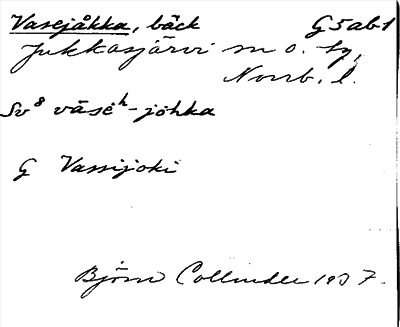 Vasejåkka, bäck G5ab1
Jukkasjärvi sn o. tg,
Norrb. l.
Sv⁸ vāsēʰ-johka
G Vassijoki
Björn Collinder 1937.